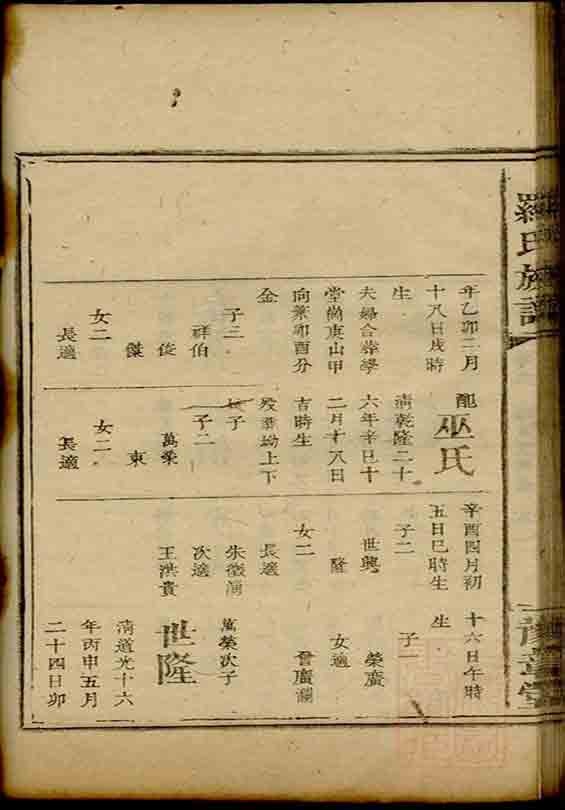 羅氏族譜
豫章堂
年乙卯二月
十八日戌時
生
夫婦合葬學
堂尚東山甲
向兼卯酉分
金
子三
祥伯
俊
傑
女二
長適
配巫氏
清乾隆二十
六年辛巳十
二月十八日
吉時生
歿葬坳上下
子
子二
萬榮
東
女二
長適
辛酉四月初
五日巳時生
子二
世興
隆
女二
長適
朱徵
次適
王洪貴
十六日午時
生
子一
榮廣
女適
曾廣瀾
萬榮次子
世隆
清道光十六
年丙申五月
二十四日卯